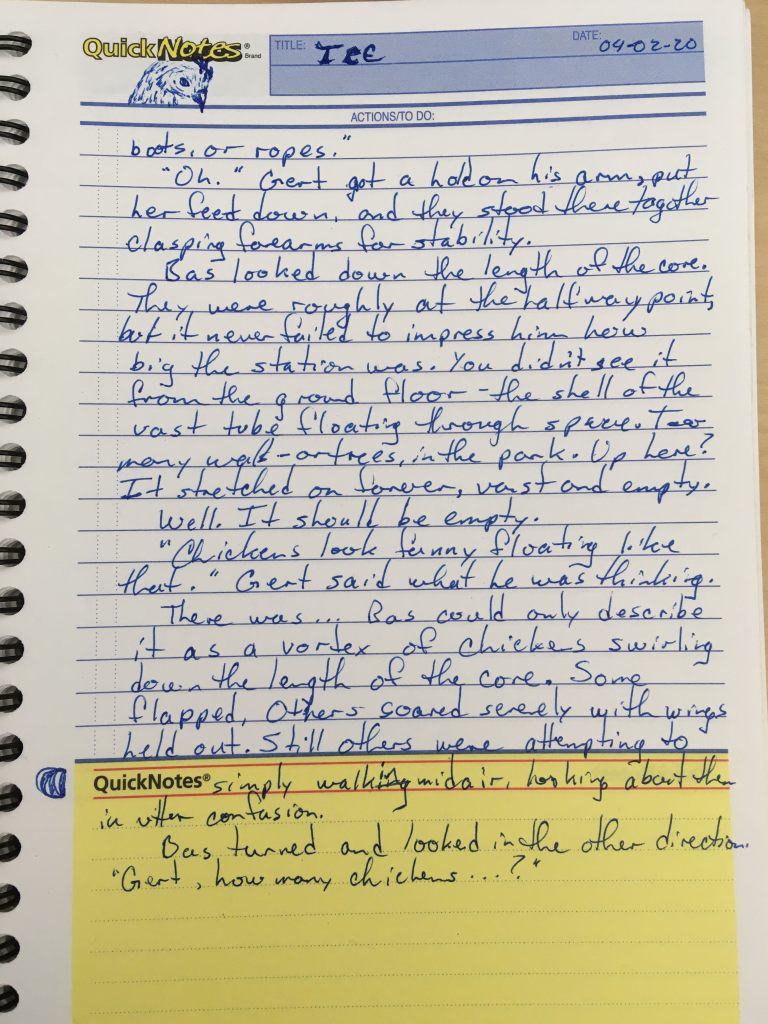 QuickNotes®
Brand
TITLE: TEE
DATE: 04-02-20
ACTIONS/TO DO:
boots, or ropes."
"Oh." Gert got a hold on his arm, put
her feed down, and they stood there together
clasping forearms for stability.
Bas looked down the length of the core.
They were roughly at the halfway point,
but it never failed to impress him how
big the station was. You didn't see it
from the ground floor - the shell of the
vast tube floating through space. Too
many walk- or trees, in the park. Up here?
It stretched on forever, vast and empty.
Well. It should be empty.
"Chickens look funny floating like
that." Gert said what he was thinking.
There was... Bas could only describe
it as a vortex of chickens swirling
down the length of the core. Some
flapped, Others soared serenely with wings
held out. Still others were attempting to
QuickNotes® simply walking midair, looking about them
in utter confusion.
Bas turned and looked in the other direction.
"Gert, how many chickens...?"